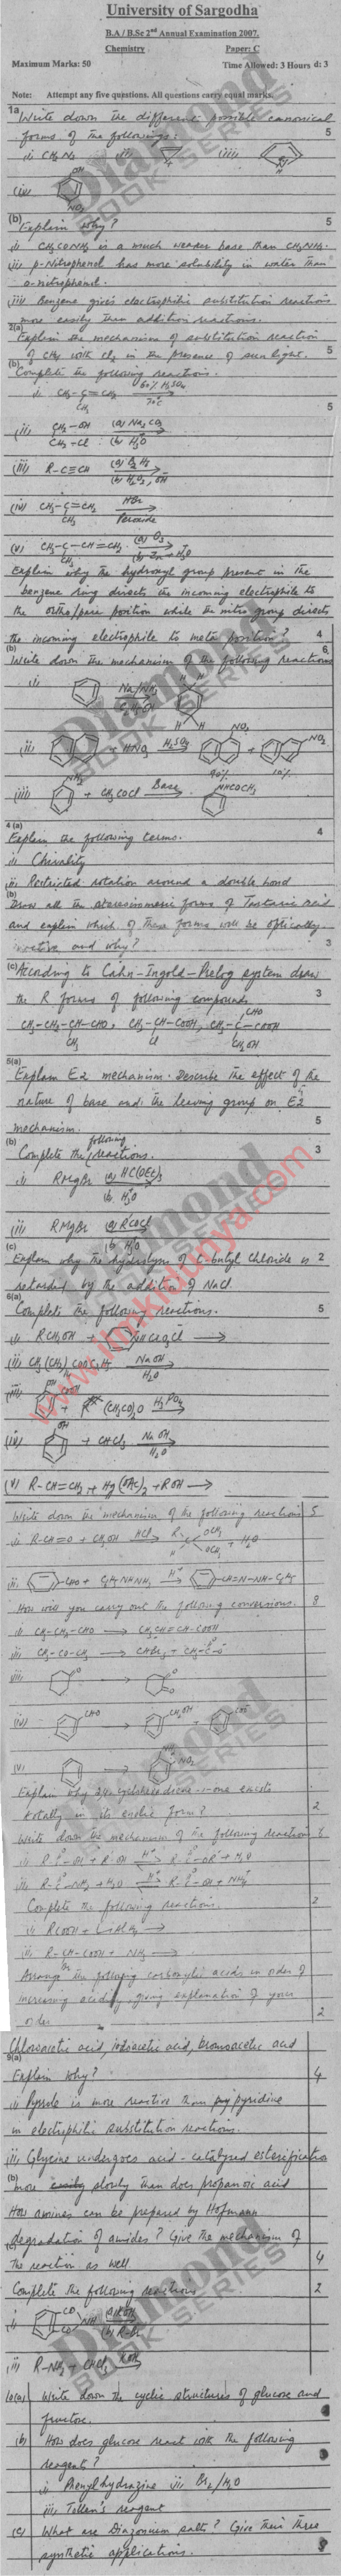 University of Sargodha
B.A / B.Sc 2nd Annual Examination 2007.
Chemistry Paper: C
Maximum Marks: 50 Time Allowed: 3 Hours d: 3
Note: Attempt any five questions. All questions carry equal marks.
1a Write down the different possible canonical
forms of the followings: 5
(i) CH2N2 (ii) (iii)
(iv) OH NO2
(b) Explain why? 5
(i) CH3CONH2 is a much weaker base than CH3NH2.
(ii) p-Nitrophenol has more solubility in water than
o-nitrophenol.
(iii) Benzene gives electrophilic substitution reactions
more easily than addition reactions.
2(a) Explain the mechanism of substitution reaction
of CH4 with Cl2 in the presence of sun light. 5
(b) Complete the following reactions.
(i) CH3-C=CH2 60% H2SO4 70°C
CH3 5
(ii) CH2-OH (a) Na2CO3
CH2-Cl (b) H3O
(iii) R-C≡CH (a) B2H6
(b) H2O2, OH
(iv) CH3-C=CH2 HBr
CH3 Peroxide
(v) CH3-C-CH=CH2 (a) O3
CH3 (b) Zn + H2O
Explain why the hydroxyl group present in the
benzene ring directs the incoming electrophile to
the ortho/para position while the nitro group directs
the incoming electrophile to meta position? 4
(b) Write down the mechanism of the following reactions 6
(i) Na/NH3 C2H5OH H H H H
(ii) + HNO3 H2SO4 NO2 + NO2
90% 10%
(iii) NH2 + CH3COCl Base NHCOCH3
4 (a) Explain the following terms. 4
(i) Chirality
(ii) Restricted rotation around a double bond
(b) Draw all the stereoisomeric forms of Tartaric acid
and explain which of these forms will be optically
inactive and why? 3
(c) According to Cahn-Ingold-Prelog system draw
the R forms of following compounds 3
CHO
CH3-CH2-CH-CHO, CH3-CH-COOH, CH3-C-COOH
CH3 Cl CH2OH
5(a) Explain E2 mechanism. Describe the effect of the
nature of base and the leaving group on E2
mechanism. 5
(b) Complete the following reactions. 3
(i) RMgBr (a) HC(OEt)3
(b) H3O
(ii) RMgBr (a) R'COCl
(b) H2O
(c) Explain why the hydrolysis of t-butyl Chloride is 2
retarded by the addition of NaCl.
6(a) Complete the following reactions. 5
(i) RCH2OH + NHCrO3Cl →
NaOH H2O
(iii) OH COOH + (CH3CO)2O H3PO4
(iv) OH + CHCl3 NaOH H2O
(v) R-CH=CH2 + Hg(OAc)2 + ROH →
Write down the mechanism of the following reactions 5
(i) R-CH=O + CH3OH HCl R H OCH3 OCH3 + H2O
(ii) CHO + C6H5NHNH2 H+ CH=N-NH-C6H5
How will you carry out the following conversions. 8
(i) CH3-CH2-CHO → CH3CH=CH-COOH
(ii) CH3-CO-CH3 → CHBr3 + CH3-C-O
(iii) O → O O
(iv) CHO → CH2OH + COO
(v) → NH2 NO2
totally in its enolic form? 2
Write down the mechanism of the following reactions
(i) R-C-OH + R'OH H+ R-C-OR' + H2O
(ii) R-C-NH2 + H2O H+ R-C-OH + NH4
Complete the following reactions. 2
(i) RCOOH + LiAlH4 →
(ii) R-CH-COOH + NH3 →
Br
Arrange the following carboxylic acids in order of
increasing acidity, giving explanation of your
order 2
Chloroacetic acid, iodoacetic acid, bromoacetic acid
9(a) Explain why? 4
(i) Pyrrole is more reactive than pyridine
in electrophilic substitution reactions.
(ii) Glycine undergoes acid-catalyzed esterification
more slowly than does propanoic acid
(b) How amines can be prepared by Hofmann
degradation of amides? Give the mechanism of
the reaction as well 4
(c) Complete the following reactions 2
(i) CO CO NH (a) KOH
(b) R-Br
(ii) R-NH2 + CHCl3 KOH
10(a) Write down the cyclic structures of glucose and
fructose.
(b) How does glucose react with the following
reagent?
(i) Phenylhydrazine (ii) Br2/H2O
(iii) Tollen's reagent
(c) What are Diazonium salts? Give their three
synthetic applications.
Diamond
BOOK SERIES
www.ilmkidunya.com